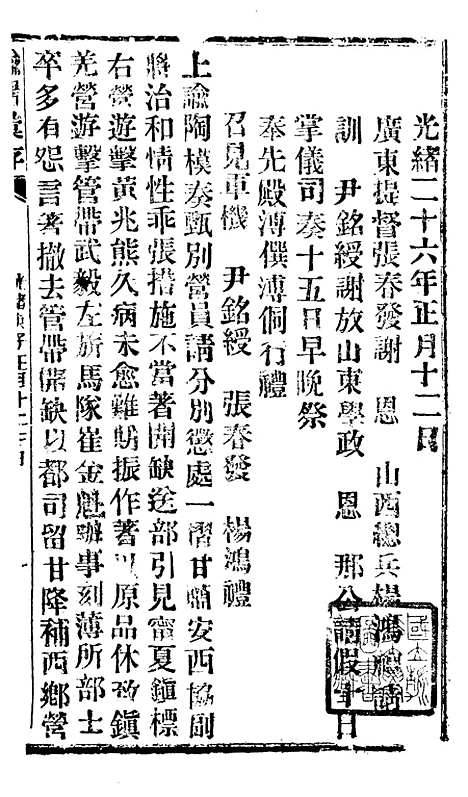 光緒二十六年正月十二日
廣東提督張春發謝　恩　山西總兵楊鴻禮請
訓　尹銘綬謝放山東學政　恩　那公請假十日
掌儀司奏十五日早晚祭
奉先殿溥僎溥侗行禮
召見軍機　尹銘綬　張春發　楊鴻禮
上諭陶模奏甄別營員請分別懲處一摺甘肅安西協副
將治和情性乖張措施不當著開缺送部引見甯夏鎮標
右營遊擊黃兆熊久病未愈難期振作著以原品休致鎮
羌營游擊管帶武毅左旂馬隊崔金魁辦事刻薄所部士
卒多有怨言著撤去管帶開缺以都司留甘降補西鄉營
諭摺彙存
光緒庚子正月十二日